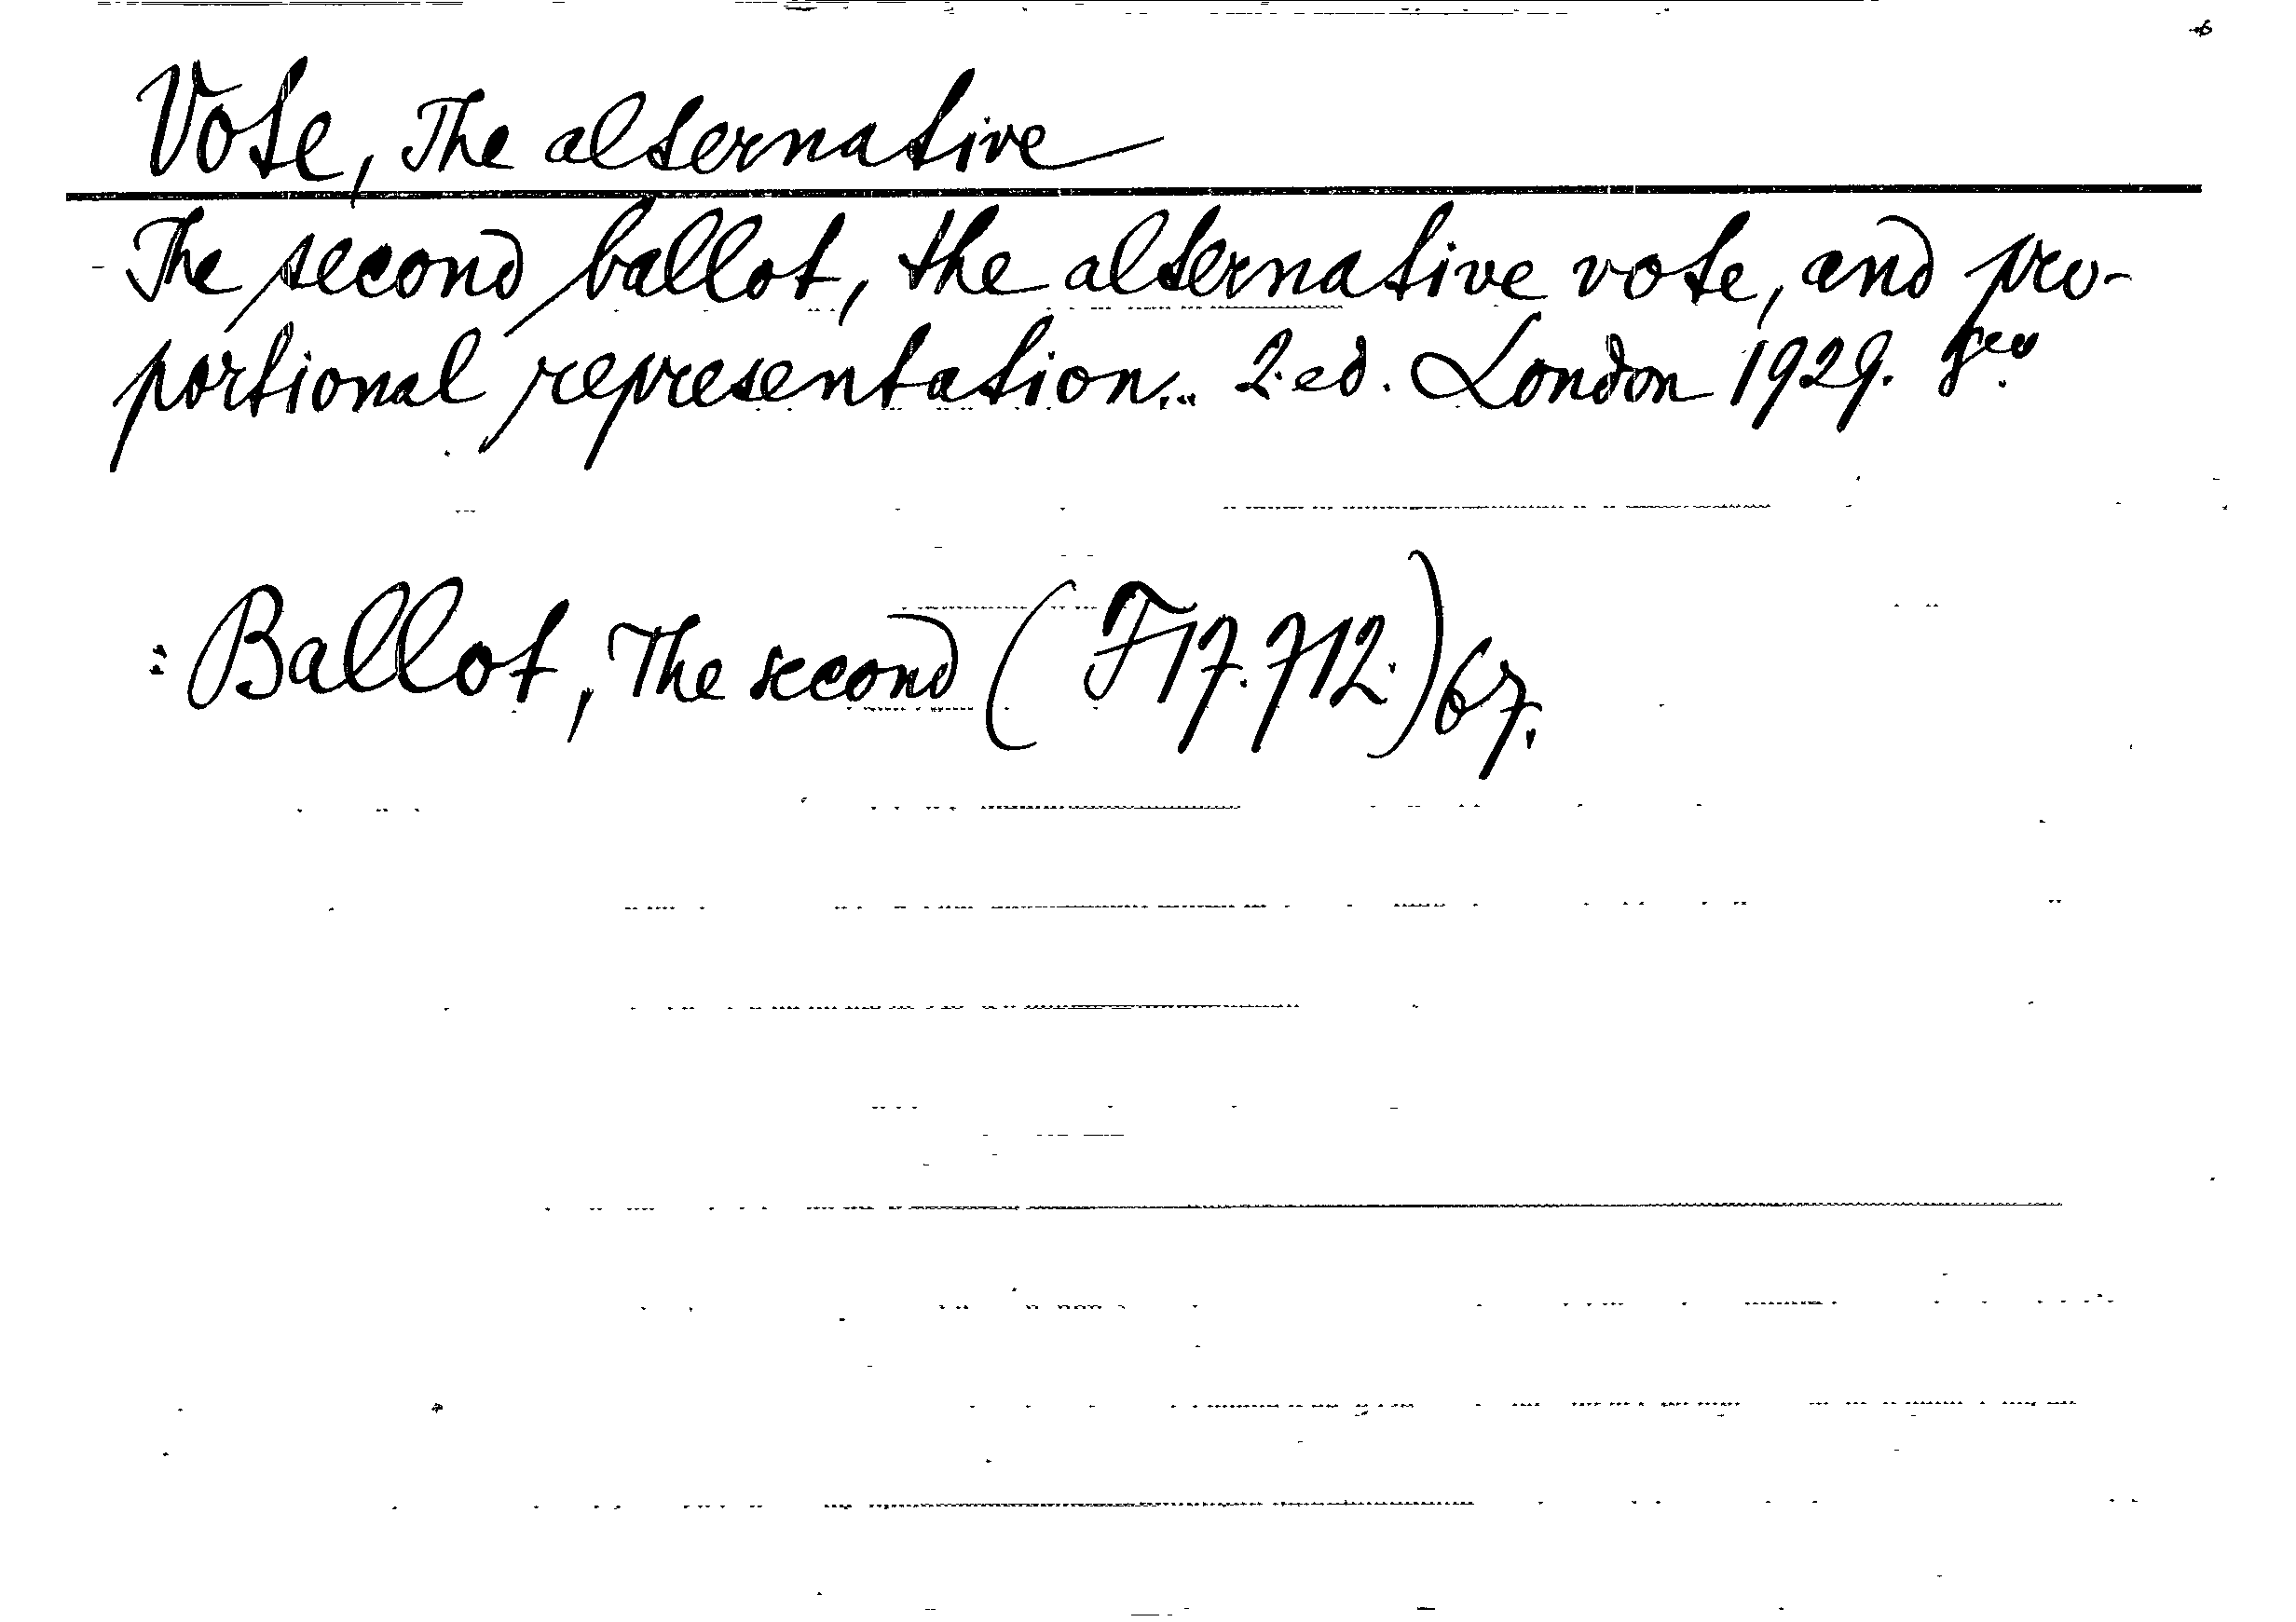 Vote, The alternative
The second ballot, the alternative vote, and pro-
portional representation... 2. ed. London 1929. 8vo.
: Ballot, The second (F17.712.) 67.